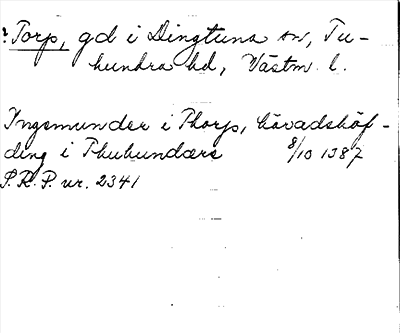 ? Torp, gd i Dingtuna sn, Tu-
hundra hd, Västm. l.
Ingemunder i Thorp, häradshöf-
ding i Thuhundære 8/10 1387
S.R.P. nr. 2341